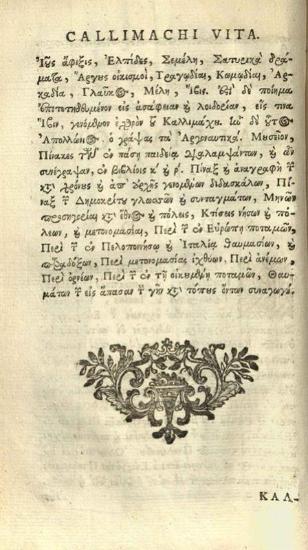 CALLIMACHI VITA.
Ἰοῦς ἄφιξις, Ἐλπίδες, Σεμέλη, Σατυρικὰ δρά-
ματα, Ἄργους οἰκισμοὶ, Τραγῳδίαι, Κωμῳδίαι, Ἀρ-
καδία, Γλαῦκος, Μέλη, Ἴβις. ἔστι δὲ ποίημα
ἐπιτετηδευμένον εἰς ἀσάφειαν καὶ λοιδορίαν, εἴς τινα
Ἴβιν, γενόμενον ἐχθρὸν τοῦ Καλλιμάχου. ἦν δὲ οὗτος
Ἀπολλώνιος ὁ γράψας τὰ Ἀργοναυτικά. Μουσεῖον,
Πίνακες τῶν ἐν πάσῃ παιδείᾳ διαλαμψάντων, καὶ ὧν
συνέγραψαν, ἐν βιβλίοις κʹ καὶ ρʹ. Πίναξ καὶ ἀναγραφὴ τῶν
κατὰ χρόνους καὶ ἀπʼ ἀρχῆς γενομένων διδασκάλων, Πί-
ναξ τῶν Δημοκρίτου γλωσσῶν καὶ συνταγμάτων, Μηνῶν
προσηγορίαι κατὰ ἔθνος καὶ πόλεις, Κτίσεις νήσων καὶ πό-
λεων, καὶ μετονομασίαι, Περὶ τῶν ἐν Εὐρώπῃ ποταμῶν,
Περὶ τῶν ἐν Πελοποννήσῳ καὶ Ἰταλίᾳ θαυμασίων, καὶ
παραδόξων, Περὶ μετονομασίας ἰχθύων, Περὶ ἀνέμων,
Περὶ ὀρνέων, Περὶ τῶν ἐν τῇ οἰκουμένῃ ποταμῶν, Θαυ-
μάτων τῶν εἰς ἅπασαν τὴν γῆν κατὰ τόπους ὄντων συναγωγή.
ΚΑΛ-